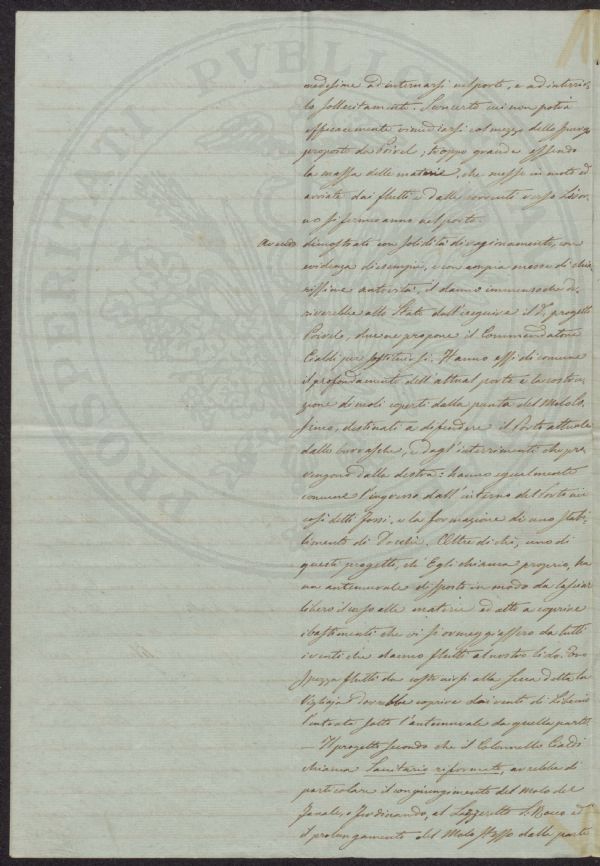 medesime ad internarsi nel porto, e ad interrir-
lo sollecitamente. Sconcerto cui non potrà
efficacemente rimediarsi col mezzo dello spurgo
proposto da Poirel, troppo grande essendo
la massa delle materie, che messe in moto ed
avviate dai flutti e dalle correnti verso Livor-
no si fermeranno nel porto.
Avendo dimostrato con solidità di ragionamento, con
evidenza di esempi, e con ampia messe di chia-
rissime autorità, il danno immenso che de-
riverebbe allo Stato dall'eseguirsi il d.o progetto
Poirel, due ne propone il Commendatore
Cialdi per sostituirsi. Hanno essi di comune
il profondamento dell'attual porto e la costru-
zione di moli coperti dalla punta del Molo Co-
simo, destinati a difendere il Porto attuale
dalle burrasche, e dagl'interrimenti che pro-
vengono dalla destra: hanno egualmente
comune l'ingresso dall'interno del Porto nei
così detti fossi, e la formazione di uno stabi-
limento di Docchi. Oltre di che, uno di
questi progetti, ch'Egli chiama proprio, ha
un antemurale disposto in modo da lasciar
libero il corso alle materie ed atto a coprire
i bastimenti che vi si ormeggiassero da tutti
i venti che danno flutti al nostro lido. Uno
spezza flutti da costruirsi alla Secca detta la
Vegliaja dovrebbe coprire dai venti di Libeccio
l'entrata sotto l'antemurale da quella parte.
— Il progetto secondo che il Colonnello Cialdi
chiama Sanitario riformato, avrebbe di
particolare il congiungimento del Molo del
Fanale, o Ferdinando, al Lazzeretto S. Rocco ed
il prolungamento del Molo stesso dalla parte
PROSPERITATI PVBLI